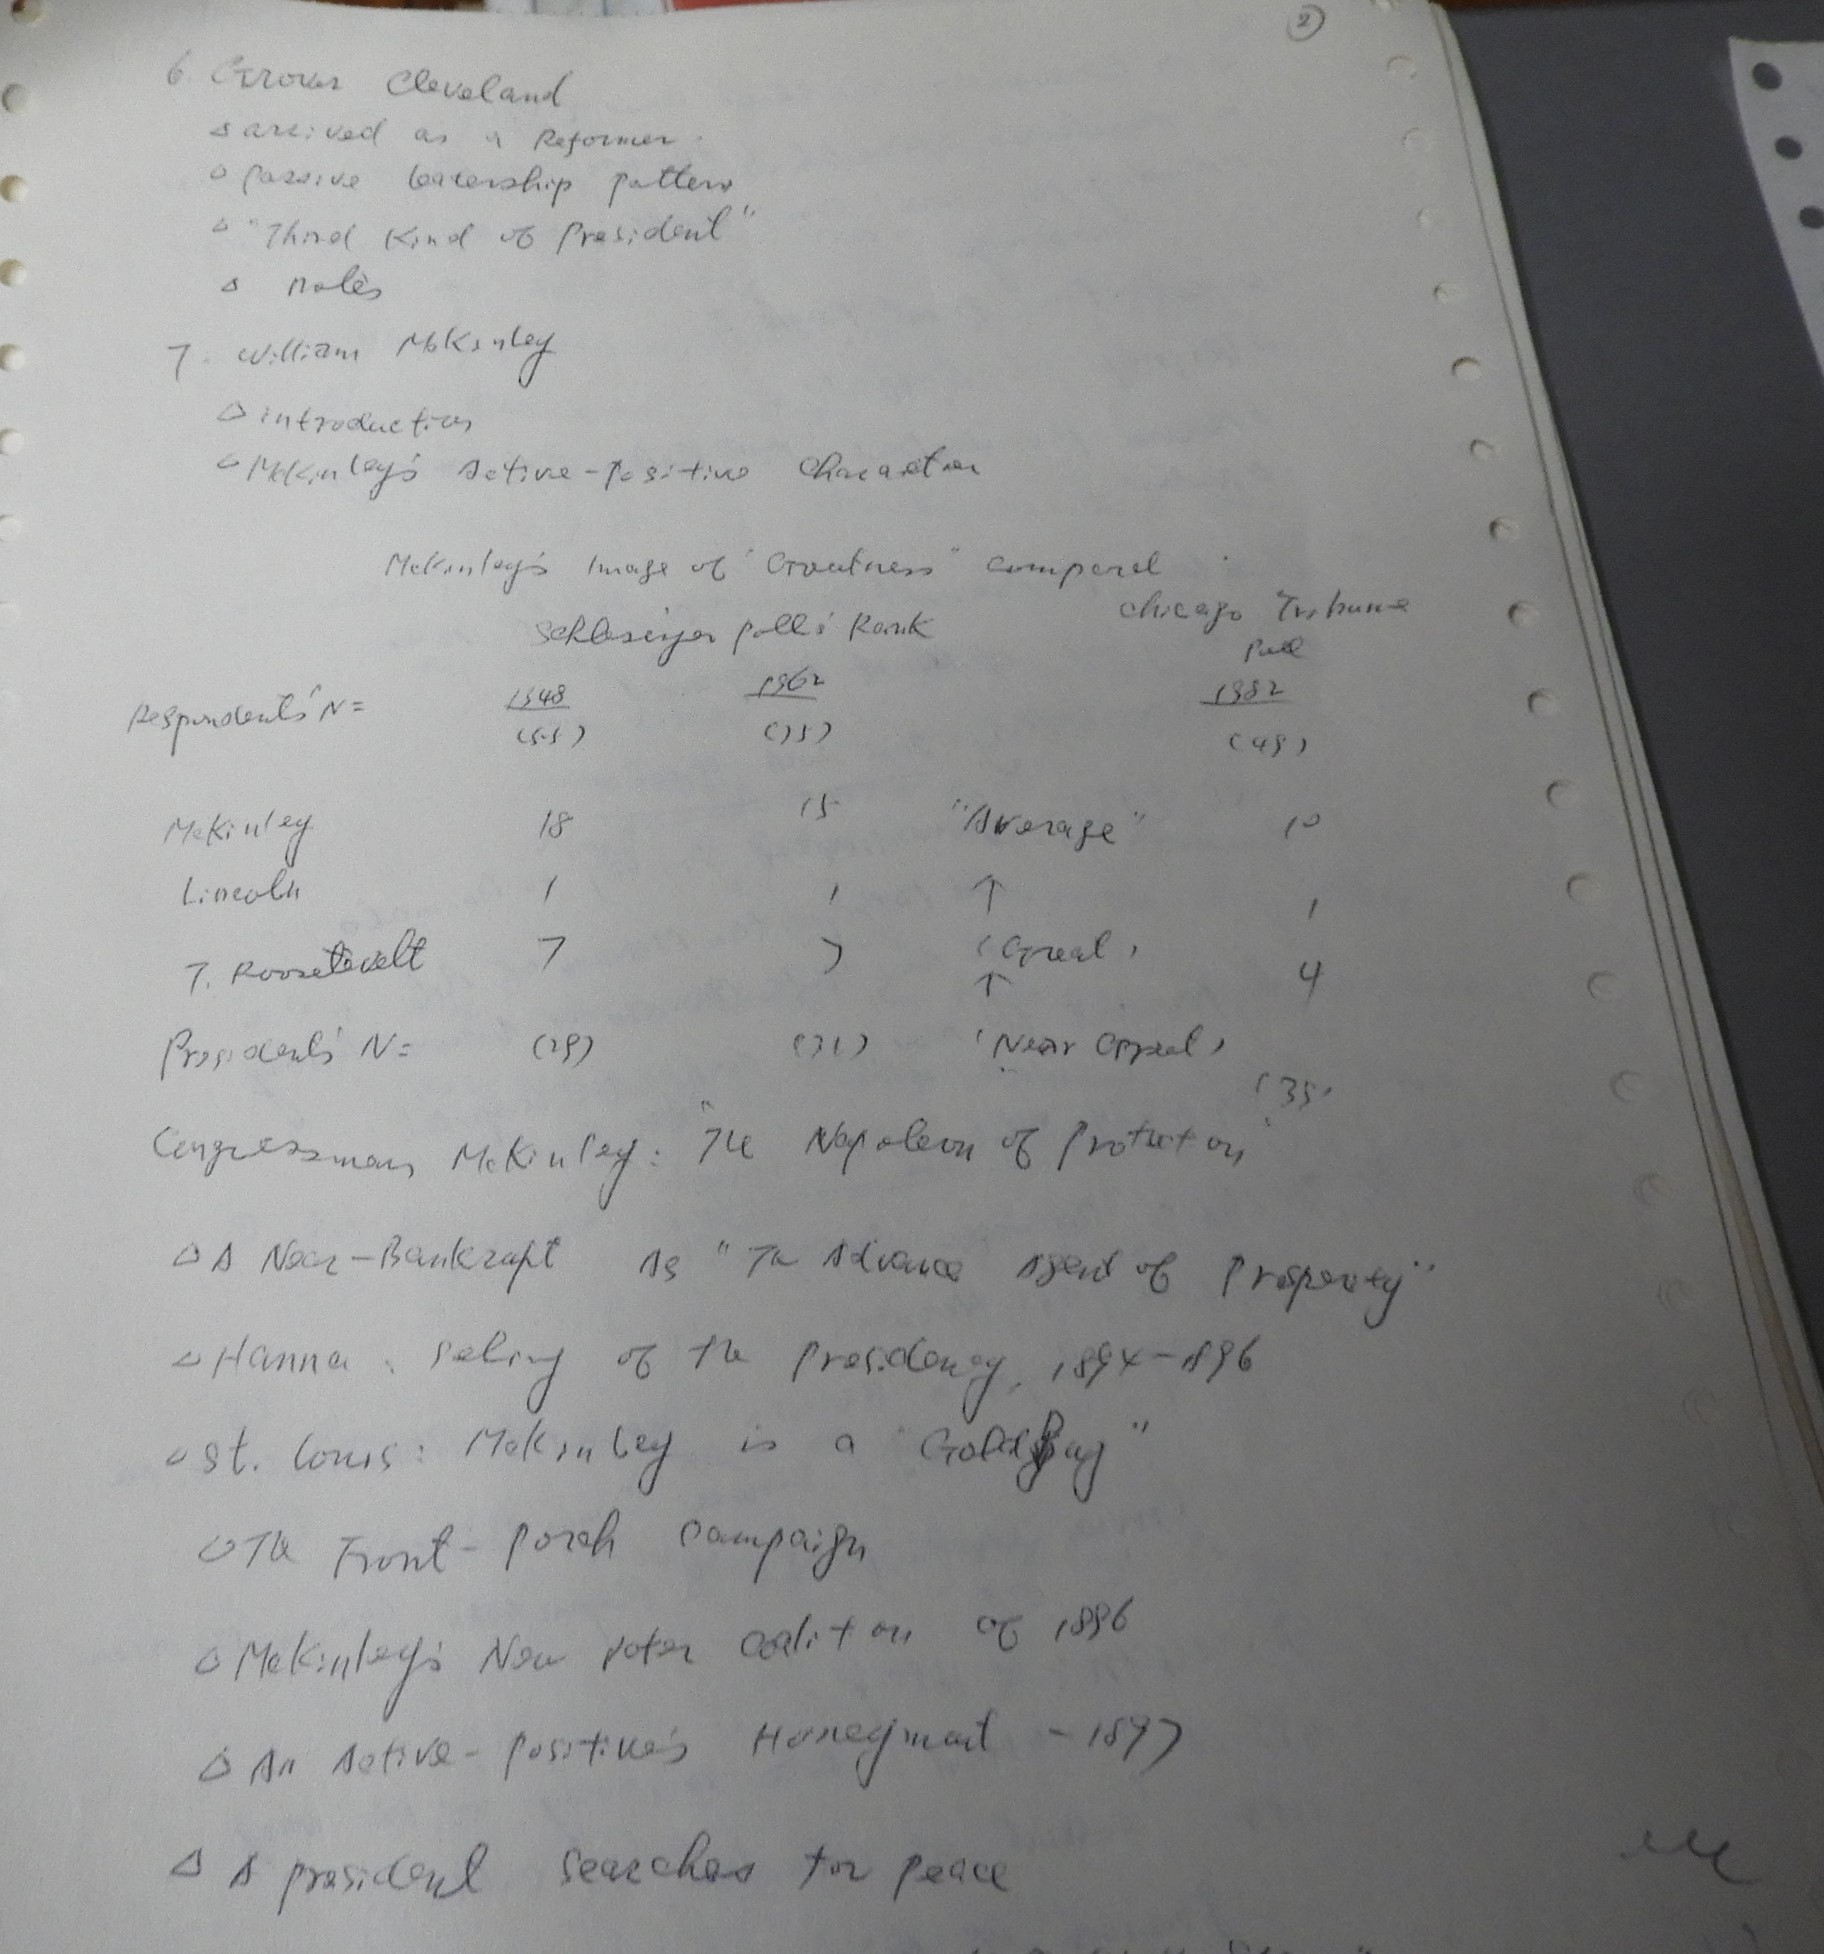 ②
6. Grover Cleveland
△ arrived as a Reformer.
△ passive leadership pattern
△ "Third Kind of President"
△ notes
7. William McKinley
△ introduction
△ McKinley's Active-Positive Character
McKinley's Image of "Greatness" Compared
Schlesinger poll's Rank Chicago Tribune
Poll
Respondents' N= 1948 1962 1982
(55) (75) (49)
McKinley 18 15 "Average" 10
Lincoln 1 1 ↑ 1
T. Roosevelt 7 7 (Great) 4
↑
Presidents' N= (29) (31) (Near Great)
(38)
Congressman McKinley: "The Napoleon of Protection"
△ A Near-Bankrupt As "The Advance Agent of Prosperity"
△ Hanna: Selling of the Presidency, 1894-1896
△ St. Louis: McKinley is a "Goldbug"
△ The Front-Porch Campaign
△ McKinley's New Voter Coalition of 1896
△ An Active-Positive's Honeymoon - 1897
△ A president searches for peace